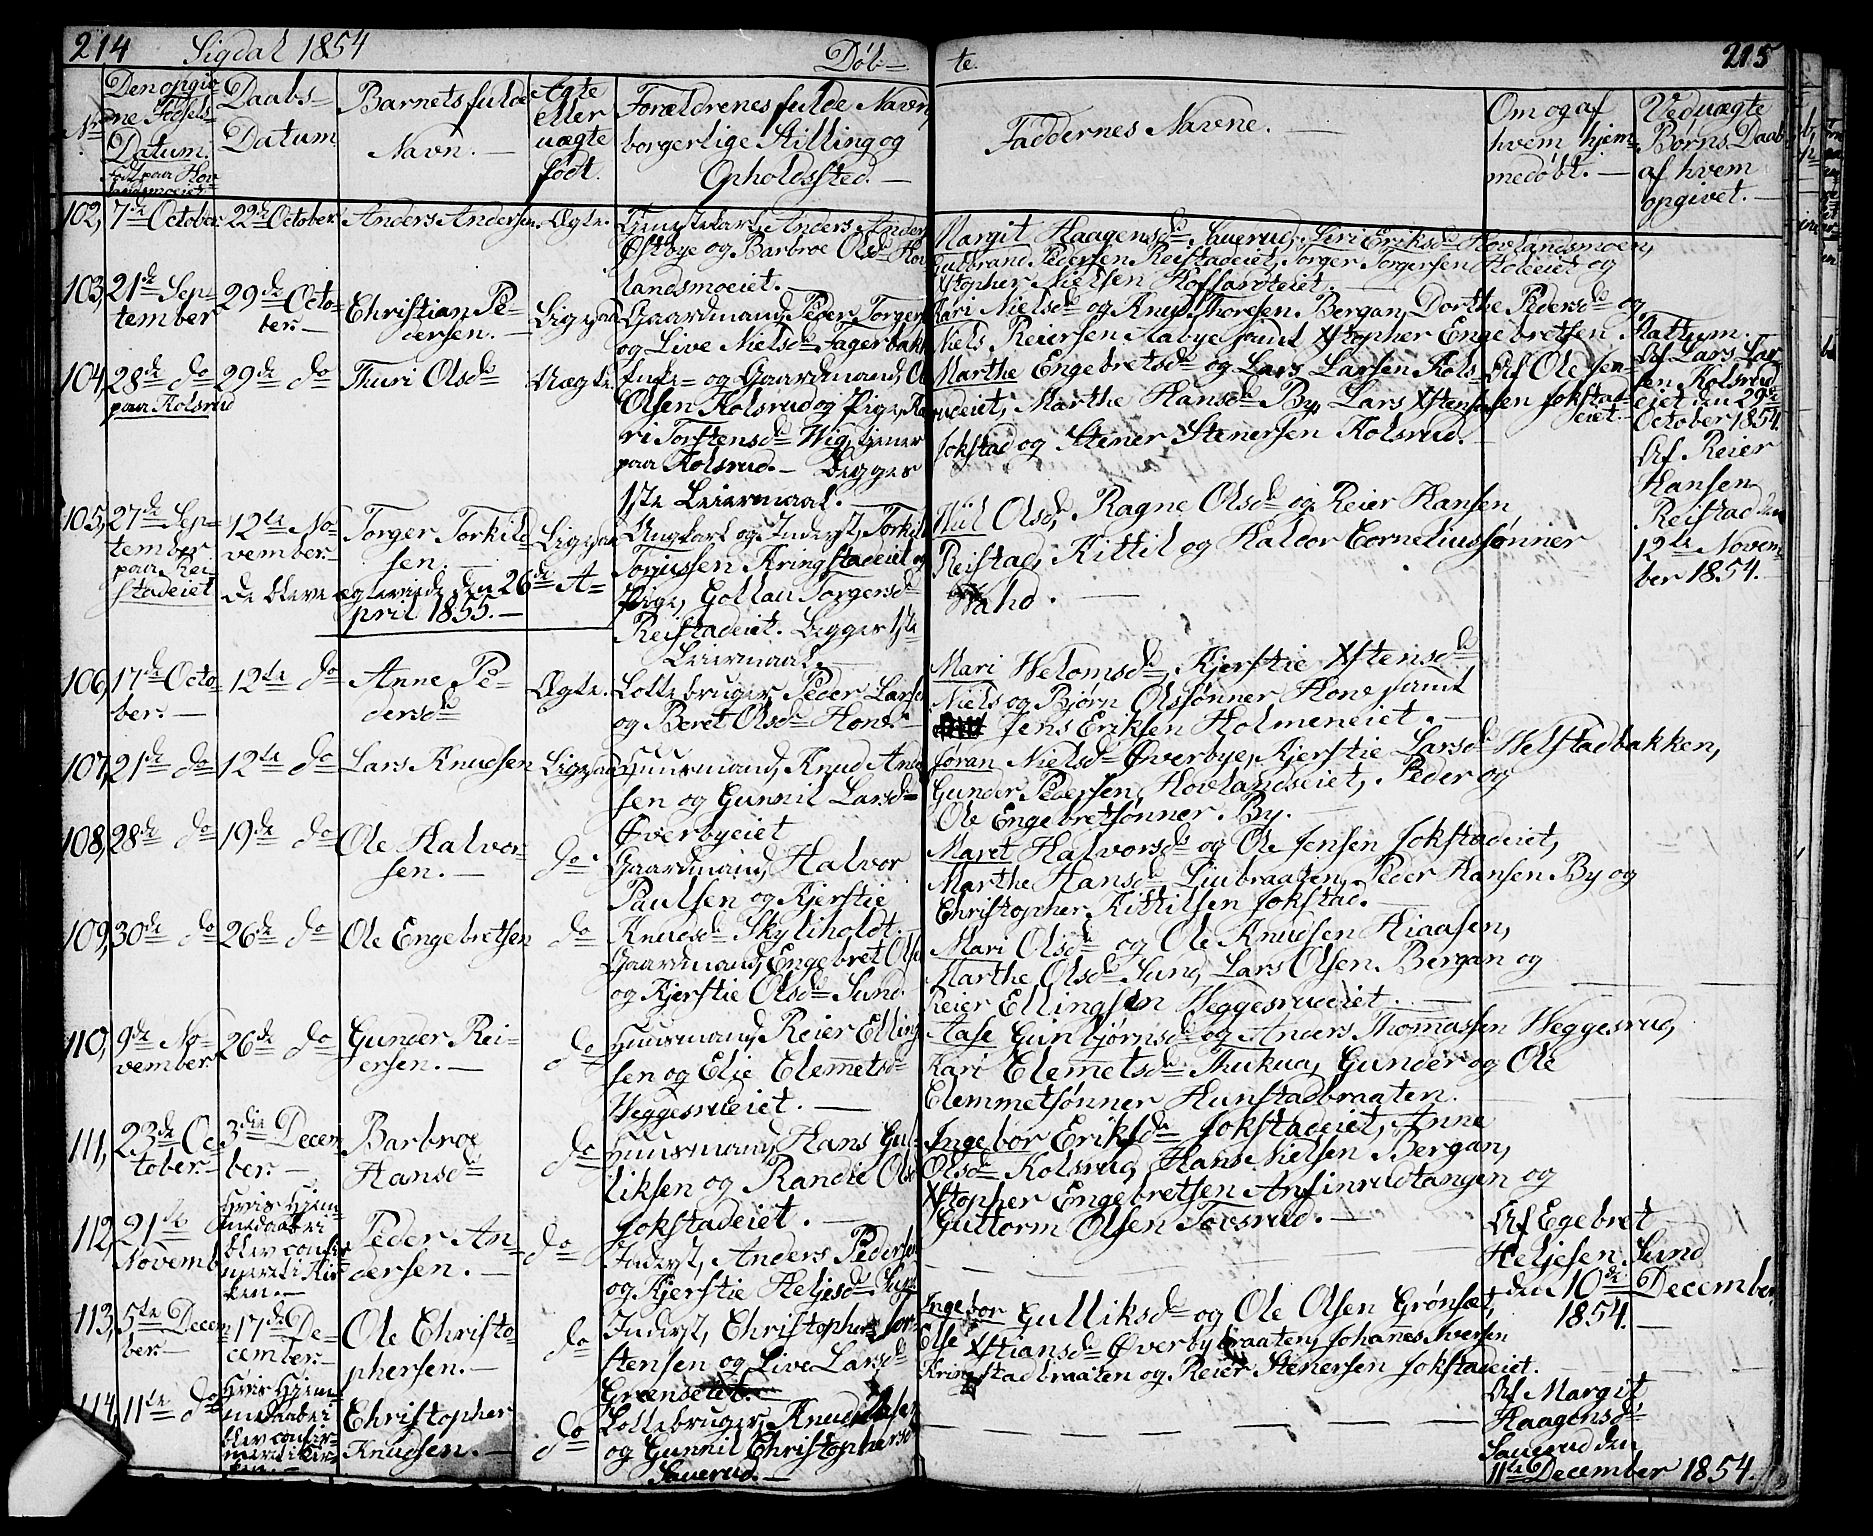 214 Sigdal 1854 Døb-
te. 215
No
Den opgiv-
ne Fødsels-
Datum.
Daabs-
Datum
Barnets fulde
Navn. —
Ægte
eller
uægte
født.
Forældrenes fulde Navn,
borgerlige Stilling og
Opholdssted. —
Faddernes Navne. —
Om og af
hvem hjem-
medøbt. —
Ved uægte
Børns Daab
af hvem
opgivet. —
102, 7de October 22de October Anders Andersen. Ægte.
Anders Ander
Østbye og Barbroe Olsd Hov
landsmoeiet. —
Margit Haagensd Sauerud, Siri Eriksd Hovlandsmoen,
Guldbrand Pedersen Reistadeiet, Torger Torgersen Hoveiet og
Xstopher Nielsen Hoffardteiet. —
103, 21de Sep-
tember
29de Octo-
ber. —
Christian Pe-
dersen. —
Ligesaa
Gaardmand, Peder Torgers
og Live Nielsd Fagerbakk
Kari Nielsd og Knud Thoresen Bergan, Dorthe Pedersd og
Niels Reiersen Aabye samt Xstopher Engebretsen Flattum.
104, 28de do
paa Kolsrud
29de do
Thuri Olsd
Uægte.
Enke- og Gaardmand, Ol
Olsen Kolsrud og Pige, Ka
ri Torstensd Wig, tjener
paa Kolsrud. — Begges
1ste Leiermaal. —
Marthe Engebretsd og Lars Larsen Kols-
rudeiet, Marthe Hansd By, Lars Xstensen
Jokstad og Stener Stenersen Kolsrud.
Af Ole Jen-
sen Jokstad-
eiet. —
Af Lars Lar
sen Kolsrud
eiet den 29de
October 1854.
105, 27de Sep-
tember
paa Rei-
stadeiet
12te No-
vember. —
Torger Torkild-
sen. —
Ligesaa
De bleve egteviede den 26de A-
pril 1855. —
Ungkarl og Inderst, Torkild
Torjussen Kringstadeiet og
Pige, Gollau Torgersd
Reistadeiet. Begges 1ste
Leiermaal. —
Olsd, Ragne Olsd og Reier Hansen
Reistad, Kittil og Haldor Corneliussønner
Wahd. —
Af Reier
Hansen
Reistad den
12te Novem-
ber 1854. —
106, 17de Octo-
ber. —
12te do
Anne Pe-
dersd
Ægte.
Lottebruger Peder Larse
og Beret Olsd Hove. —
Mari Welomsd, Kjerstie Xstensd
Niels og Bjørn Olssønner Hove samt
Jens Eriksen Holmeneiet. —
107, 21de do 12te do Lars Knudsen Ligesaa
Huusmand, Knud Ande
sen og Gunnil Larsd
Øverbyeiet
Jøran Nielsd Øverbye, Kjerstie Larsd Welstadbakken,
Gunder Pedersen Hovlandseiet, Peder og
Ole Engebretsønner By. —
108, 28de do 19de do
Ole Halvor-
sen. —
do
Gaardmand, Halvor
Paulsen og Kjerstie
Knudsd Skyliholdt. —
Maret Halvorsd og Ole Jensen Jokstadeiet,
Marthe Hansd Liubraaten, Peder Hansen By og
Christopher Kittilsen Jokstad. —
109, 30de do 26de do Ole Engebretsen do
Gaardmand, Engebret Olse
og Kjerstie Olsd Sund.
Mari Olsd og Ole Knudsen Kiaasen,
Marthe Olsd Sund, Lars Olsen Bergan og
Reier Ellingsen Heggesrudeiet. —
110, 9de No-
vember.
26de do
Gunder Rei-
ersen. —
do
Huusmand, Reier Elling
sen og Elie Clemetsd
Heggesrudeiet. —
Aase Gunbjørnsd og Anders Thomassen Heggesrud,
Kari Elemetsd Thukua, Gunder og Ole
Elemmetsønner Hunstadbraaten.
111, 23de Oc-
tober. —
3die Decem
ber. —
Barbroe
Hansd
do
Huusmand, Hans Gul-
liksen og Randie Ols
Jokstadeiet. —
Ingebor Eriksd Jokstadeiet, Anne
Olsd Kolsrud, Hans Nielsen Bergan,
Xstopher Engebretsen Anfinrudtangen og
Guttorm Olsen Toesrud. —
112, 21de
Novemb
Hvis Hjem-
medaab i
blev confir
meret i Kir
ken. —
Peder An-
dersen. —
do
Inderst, Anders Peders
og Kjerstie Heljesd
Af Egebret
Heljesen Sund
den 10de December
1854. —
113, 5te Decem
ber. —
17de De-
cember. —
Ole Christo-
phersen. —
do
Inderst, Christopher Tor-
stensen og Live Larsd
Grønseteiet. —
Ingebor Gulliksd og Ole Olsen Grønsæt,
Else Xstiansd Øverbybraaten, Johanes Iversen
Kringstadbraaten og Reier Stenersen Jokstadeiet.
114, 11te do
Hvis Hjem-
medaab i
blev confir-
meret i Kir-
ken. —
Christopher
Knudsen. —
do
Lottebruger, Knud
og Gunnil Christophersd
Sauerud. —
Af Margit
Haagensd
Sauerud den
11te December 1854.